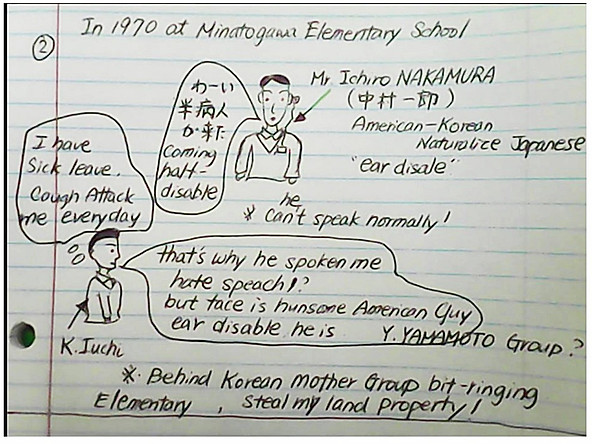 ②
In 1970 at Minatogawa Elementary School
Mr. Ichiro NAKAMURA
(中村一郎)
American-Korean
Naturalize Japanese
"ear disale"
わーい
半病人
が来た
Coming
half-
disable
I have
Sick leave.
Cough Attack
me everyday
he
※ Can't speak normally!
that's why he spoken me
hate speach!?
but face is hunsome American Guy
ear disable he is Y.YAMAMOTO Group?
K.Iuchi
※. Behind Korean mother Group bit-ringing
Elementary , steal my land Property!